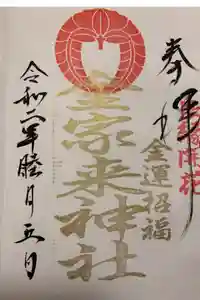 奉拝
開花
金運招福
家来神社
令和二年睦月五日